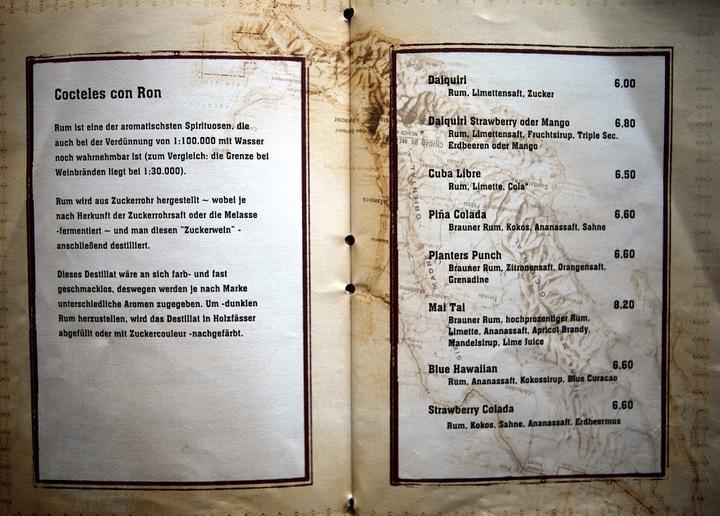 Cocteles con Ron
Rum ist eine der aromatischsten Spirituosen, die
auch bei der Verdünnung von 1:100.000 mit Wasser
noch wahrnehmbar ist (zum Vergleich: die Grenze bei
Weinbränden liegt bei 1:30.000).
Rum wird aus Zuckerrohr hergestellt ~ wobei je
nach Herkunft der Zuckerrohrsaft oder die Melasse
-fermentiert ~ und man diesen "Zuckerwein" -
anschließend destilliert.
Dieses Destillat wäre an sich farb- und fast
geschmacklos, deswegen werden je nach Marke
unterschiedliche Aromen zugegeben. Um -dunklen
Rum herzustellen, wird das Destillat in Holzfässer
abgefüllt oder mit Zuckercouleur -nachgefärbt.
Daiquiri 6.00
Rum, Limettensaft, Zucker
Daiquiri Strawberry oder Mango 6,80
Rum, Limettensaft, Fruchtsirup, Triple Sec.
Erdbeeren oder Mango
Cuba Libre 6,50
Rum, Limette, Cola*
Piña Colada 6.60
Brauner Rum, Kokos, Ananassaft, Sahne
Planters Punch 6.60
Brauner Rum, Zitronensaft, Orangensaft,
Grenadine
Mai Tai 8,20
Brauner Rum, hochprozentiger Rum,
Limette, Ananassaft, Apricot Brandy,
Mandelsirup, Lime Juice
Blue Hawaiian 6,60
Rum, Ananassaft, Kokossirup, Blue Curacao
Strawberry Colada 6,60
Rum, Kokos, Sahne, Ananassaft, Erdbeermus